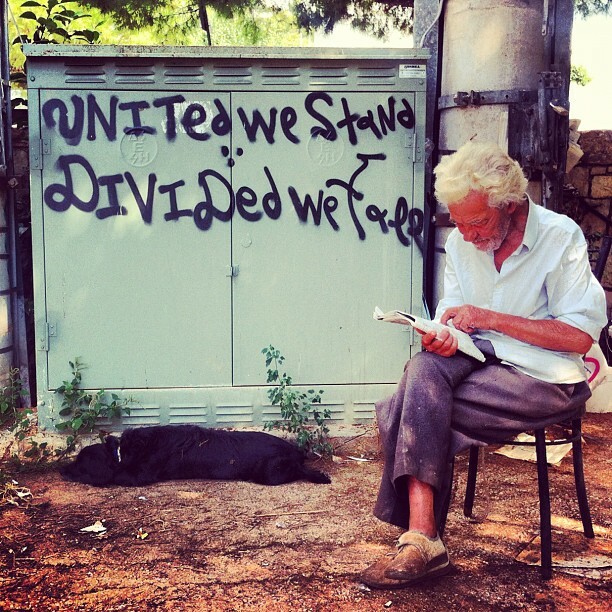 UNITed we Stand
DIVIDed we Fall